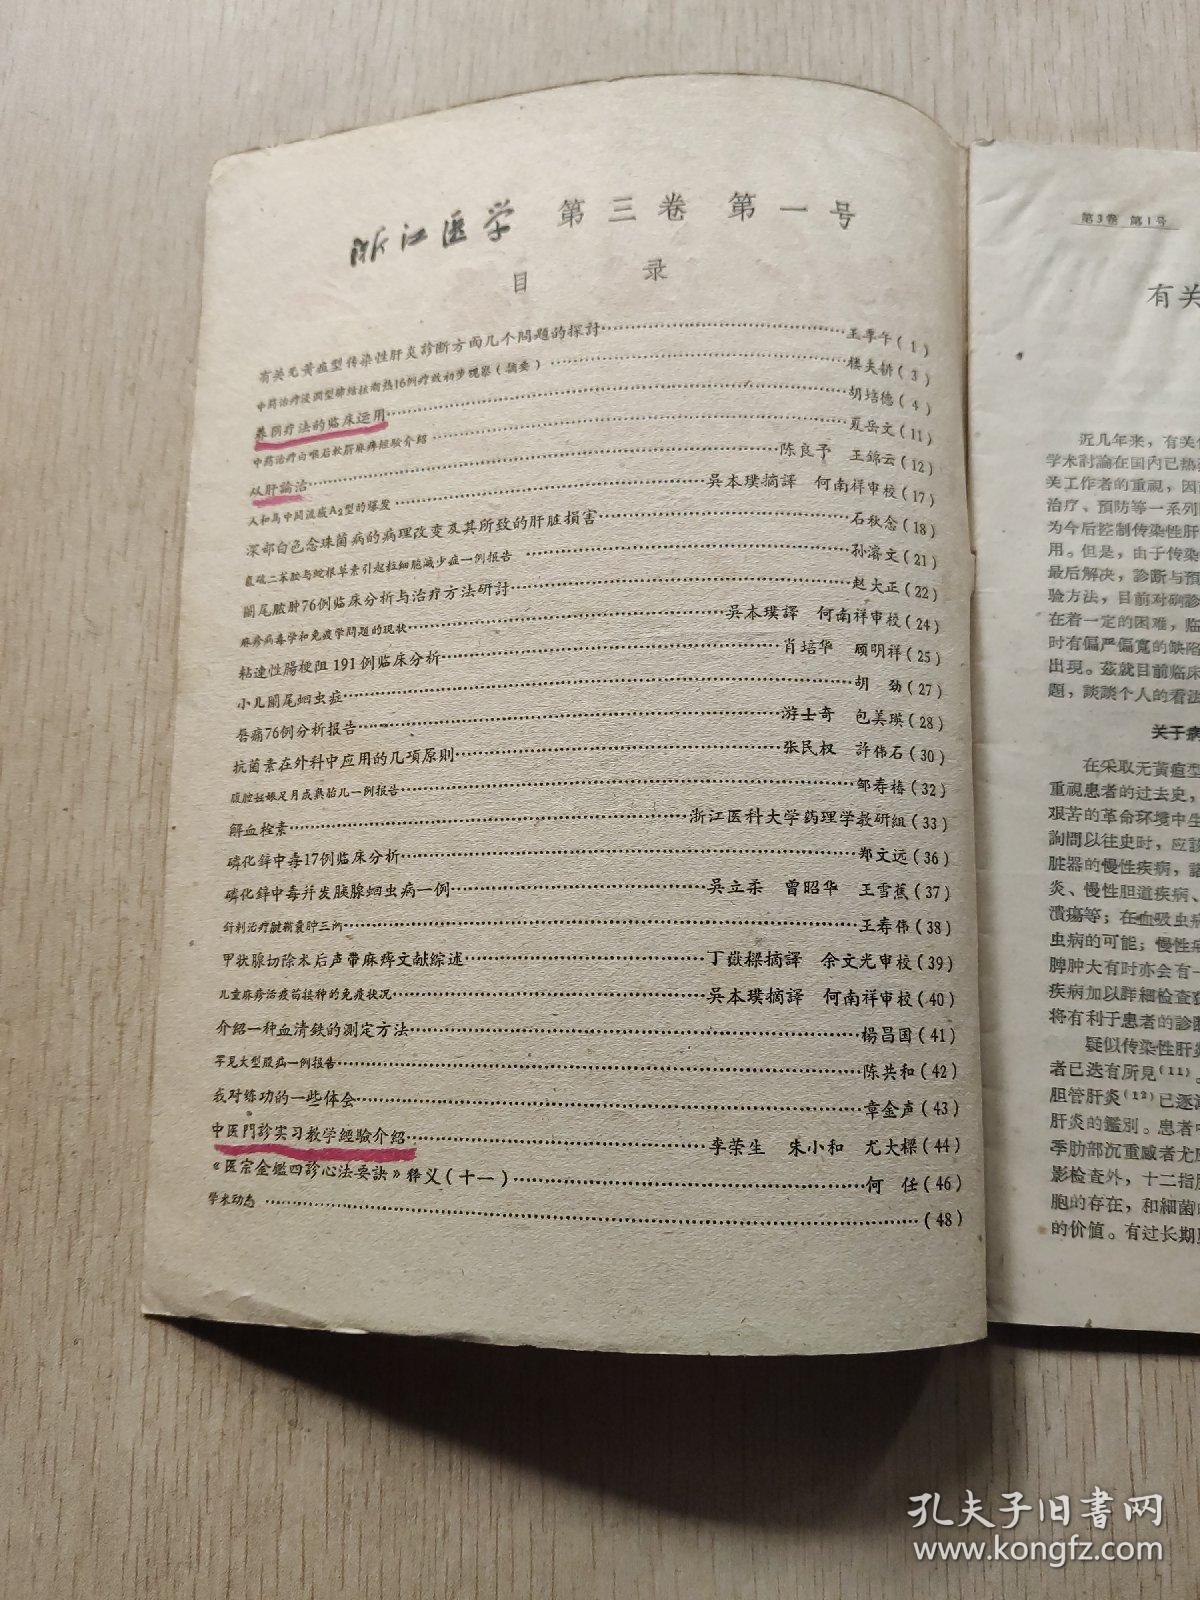 浙江医学 第三卷 第一号
目 录
有关无黄疸型传染性肝炎診断方面几个問題的探討 王季午(1)
中药治疗浸潤型肺結核潮热16例疗效初步观察(摘要) (3)
养阴疗法的临床运用 胡培德(4)
中药治疗白喉后軟腭麻痹經驗介紹 夏岳文(11)
从肝論治 陈良予 王錦云(12)
人和馬中間流感A2型的爆发 吳本璞摘譯 何南祥审校(17)
深部白色念珠菌病的病理改变及其所致的肝脏損害 石秋念(18)
氨硫二苯胺与蛇根草素引起粒細胞減少症一例报告 孙濬文(21)
闌尾脓肿76例临床分析与治疗方法研討 赵大正(22)
麻疹病毒学和免疫学問題的現状 吳本璞譯 何南祥审校(24)
粘連性腸梗阻191例临床分析 肖培华 顾明祥(25)
小儿闌尾蛔虫症 胡 劲(27)
唇痛76例分析报告 游士奇 包美瑛(28)
抗菌素在外科中应用的几項原則 张民权 許伟石(30)
腹腔妊娠足月成臭胎儿一例报告 邹寿椿(32)
解血栓素 浙江医科大学药理学教研組(33)
磷化鋅中毒17例临床分析 郑文远(36)
磷化鋅中毒并发胰腺蛔虫病一例 吴立柔 曾昭华 王雪蕉(37)
針刺治疗腱鞘囊肿三例 王寿伟(38)
甲状腺切除术后声带麻痹文献綜述 丁燊樑摘譯 余文光审校(39)
儿童麻疹活疫苗接种的免疫状况 吳本璞摘譯 何南祥审校(40)
介紹一种血清鉄的測定方法 楊昌国(41)
罕见大型股疝一例报告 陈共和(42)
我对练功的一些体会 章金声(43)
中医門診实习教学經驗介紹 李荣生 朱小和 尤大樑(44)
《医宗金鑑四診心法要訣》释义(十一) 何 任(46)
学术动态 (48)
第3卷 第1号
有关
近几年来，有关
学术討論在国内已热
关工作者的重視，因
治疗、預防等一系列
为今后控制传染性肝
用。但是，由于传染
最后解决，診断与預
驗方法，目前对
在着一定的困难，临
时有偏严偏寬的缺陷
出現。茲就目前临床
題，談談个人的看法
关于病
在采取无黃疸型
重視患者的过去史，
艰苦的革命环境中生
詢問以往史时，应該
脏器的慢性疾病，諸
炎、慢性胆道疾病、
潰瘍等；在血吸虫病
虫病的可能；慢性
脾肿大有时亦会有一
疾病加以詳細检查
将有利于患者的診断
疑似传染性肝炎
者已迭有所見(11)。
胆管肝炎(12)已逐
肝炎的鑑別。患者
季肋部沉重感者尤
影检查外，十二指
胞的存在，和細菌
的价值。有过长期
孔夫子旧书网
www.kongfz.com